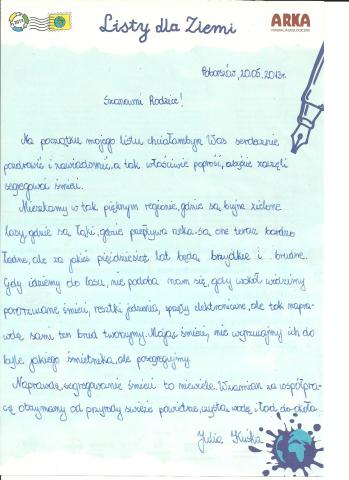 Listy dla Ziemi
ARKA
Poborszów, 20.05.2013r.
Szanowni Rodzice!
Na początku mojego listu chciałambym Was serdecznie
pozdrowić i zawiadomić, a tak właściwie poprosić, abyście zaczęli
segregować śmieci.
Mieszkamy w tak pięknym regionie, gdzie są bujne zielone
lasy, gdzie są łąki, gdzie przepływa rzeka - są one teraz bardzo
ładne, ale za jakieś pięćdziesiąt lat będą brzydkie i brudne.
Gdy idziemy do lasu, nie podoba nam się, gdy wokół widzimy
porozrzucane śmieci, resztki jedzenia, sprzęty elektroniczne, ale tak napra-
wdę sami ten brud tworzymy. Mając śmieci, nie wyrzucajmy ich do
byle jakiego śmietnika, ale posegregujmy.
Naprawdę, segregowanie śmieci to niewiele. W zamian za współpra-
cę otrzymamy od przyrody świeże powietrze, czystą wodę i ład do okoła.
Julia Kuśka